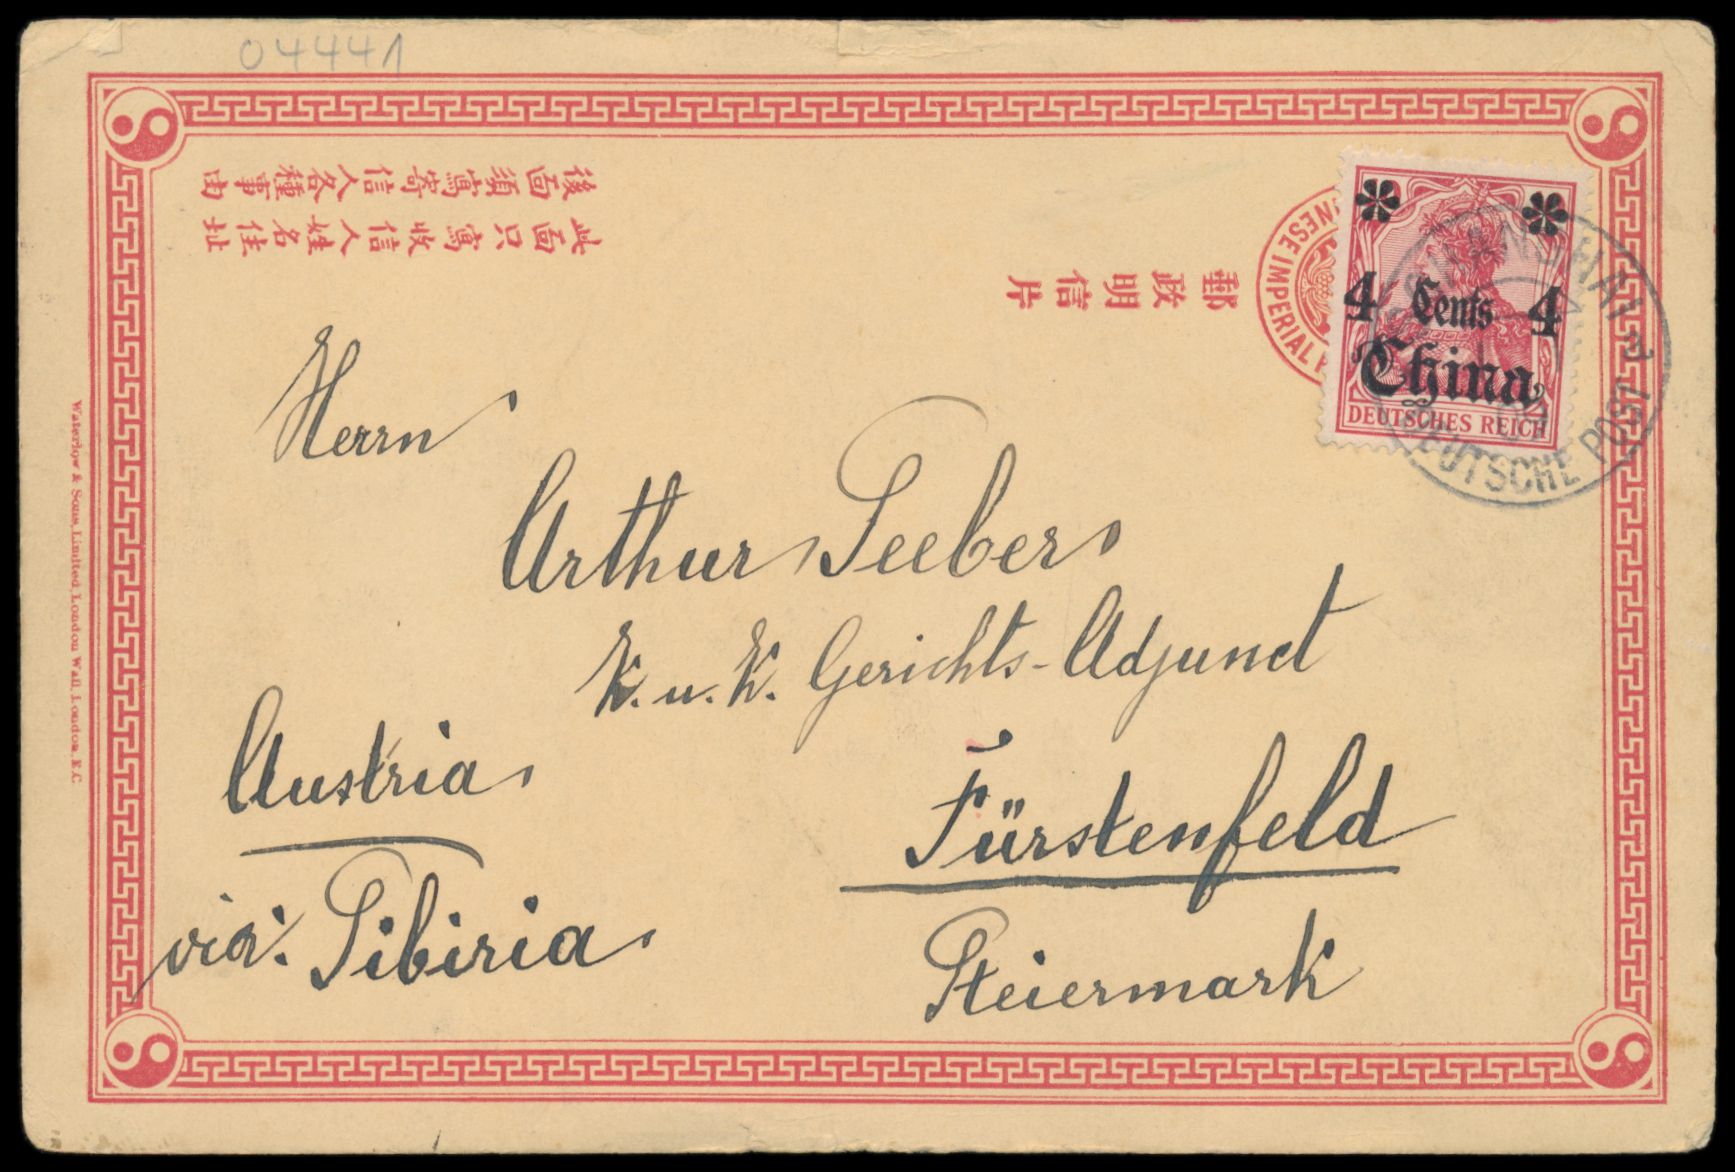 04441
後面須寫寄信人各種事由
此面只寫收信人姓名住址
郵政明信片
NESE IMPERIAL
4 Cents 4
China
DEUTSCHES REICH
SHANGHAI
DEUTSCHE POST
Herrn
Arthur Seeber
K. u. K. Gerichts-Adjunct
Fürstenfeld
Steiermark
Austria
via: Sibiria
Waterlow & Sons, Limited, London Wall, London, E.C.